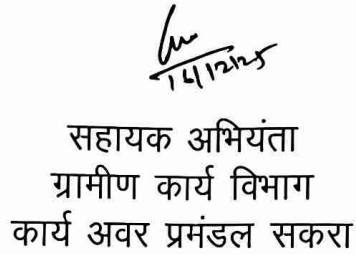 16/12/25
सहायक अभियंता
ग्रामीण कार्य विभाग
कार्य अवर प्रमंडल सकरा